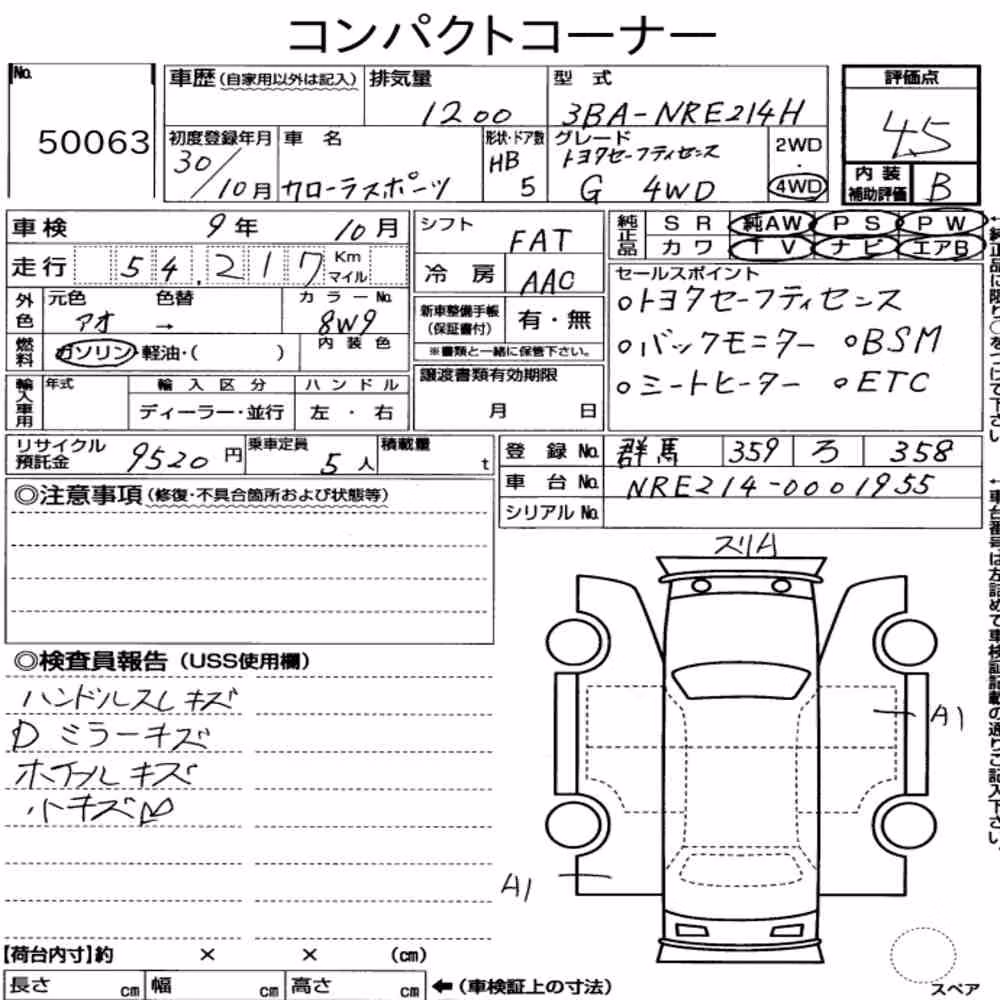 コンパクトコーナー
No.
50063
車歴(自家用以外は記入)
排気量
1200
型式
3BA-NRE214H
評価点
4.5
初度登録年月
30/10月
車名
カローラスポーツ
形状・ドア数
HB
5
グレード
トヨタセーフティセンス
G 4WD
2WD
・
4WD
内装
補助評価
B
車検 9年 10月
走行 54,217 Km
マイル
シフト
FAT
冷房
AAC
純正品
SR 純AW PS PW
カワ TV ナビ エアB
←純正品に限り○をつけて下さい
外色
元色 色替 カラーNo.
アオ → 8W9
燃料
ガソリン・軽油・( )
内装色
新車整備手帳
(保証書付)
有・無
※書類と一緒に保管下さい。
セールスポイント
○トヨタセーフティセンス
○バックモニター ○BSM
○シートヒーター ○ETC
輸入車用
年式 輸入区分 ハンドル
ディーラー・並行 左・右
譲渡書類有効期限
月 日
リサイクル
預託金
9520円
乗車定員
5人
積載量
t
登録No. 群馬 359 ろ 358
車台No. NRE214-0001955
シリアルNo.
←車台番号は左詰めで車検証記載の通りご記入下さい。
◎注意事項(修復・不具合箇所および状態等)
スリA
◎検査員報告(USS使用欄)
ハンドルスレキズ
Dミラーキズ
ホイールキズ
小キズ
A1
A1
【荷台内寸】約 × × (cm)
長さ cm 幅 cm 高さ cm ←(車検証上の寸法)
スペア